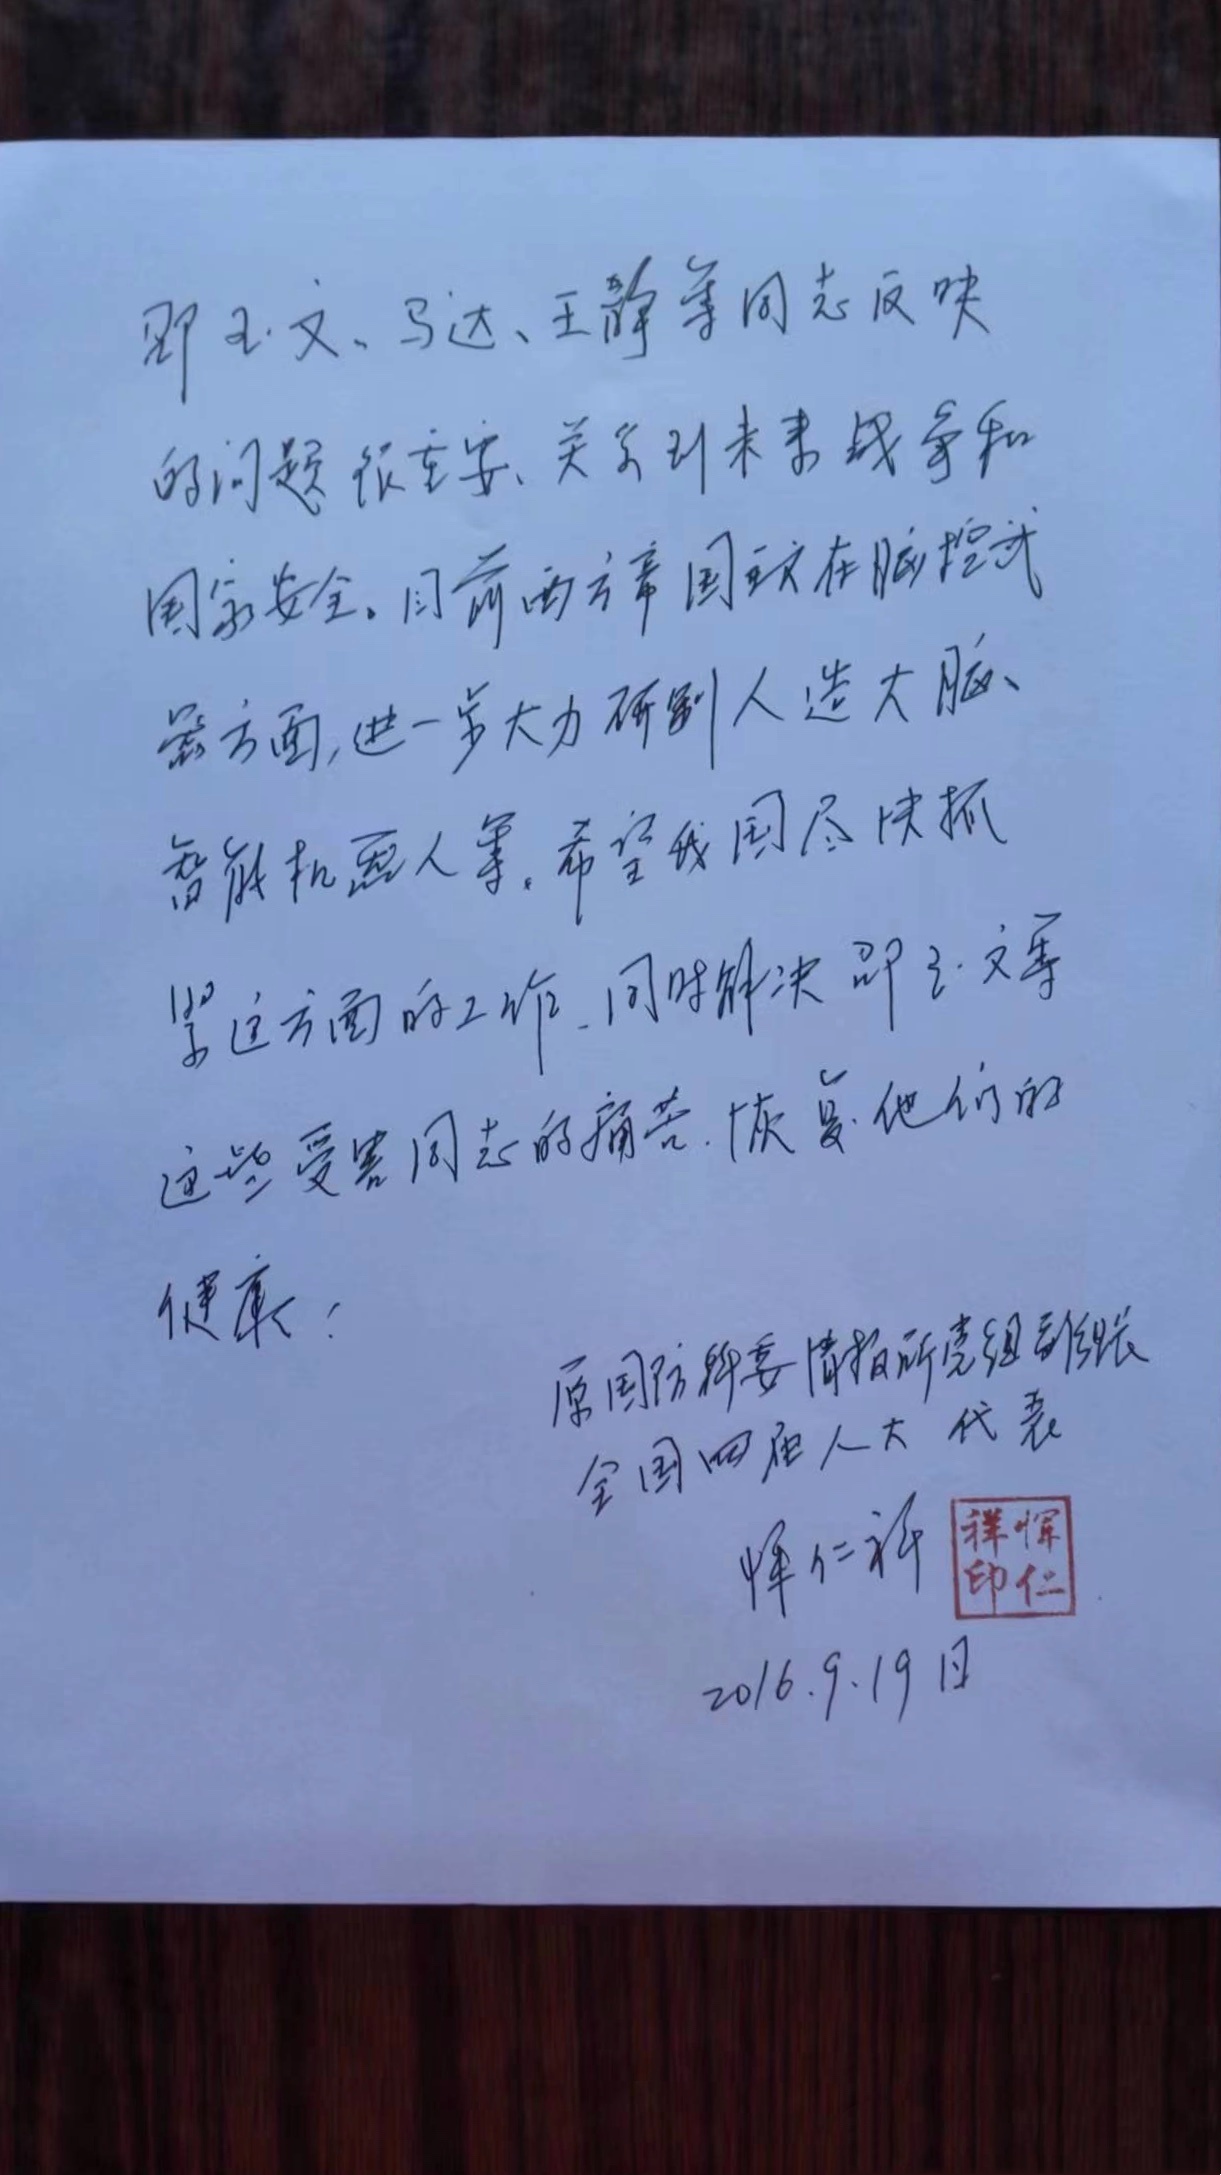 邵玉文、马达、王静等同志反映
的问题很重要、关系到未来战争和
国家安全。目前西方帝国主义在脑控武
器方面,进一步大力研制人造大脑、
智能机器人等。希望我国尽快抓
紧这方面的工作、同时解决邵玉文等
这些受害同志的痛苦、恢复他们的
健康!
原国防科委情报所党组副组长
全国四届人大代表
恽仁祥
恽仁祥印
2016.9.19日